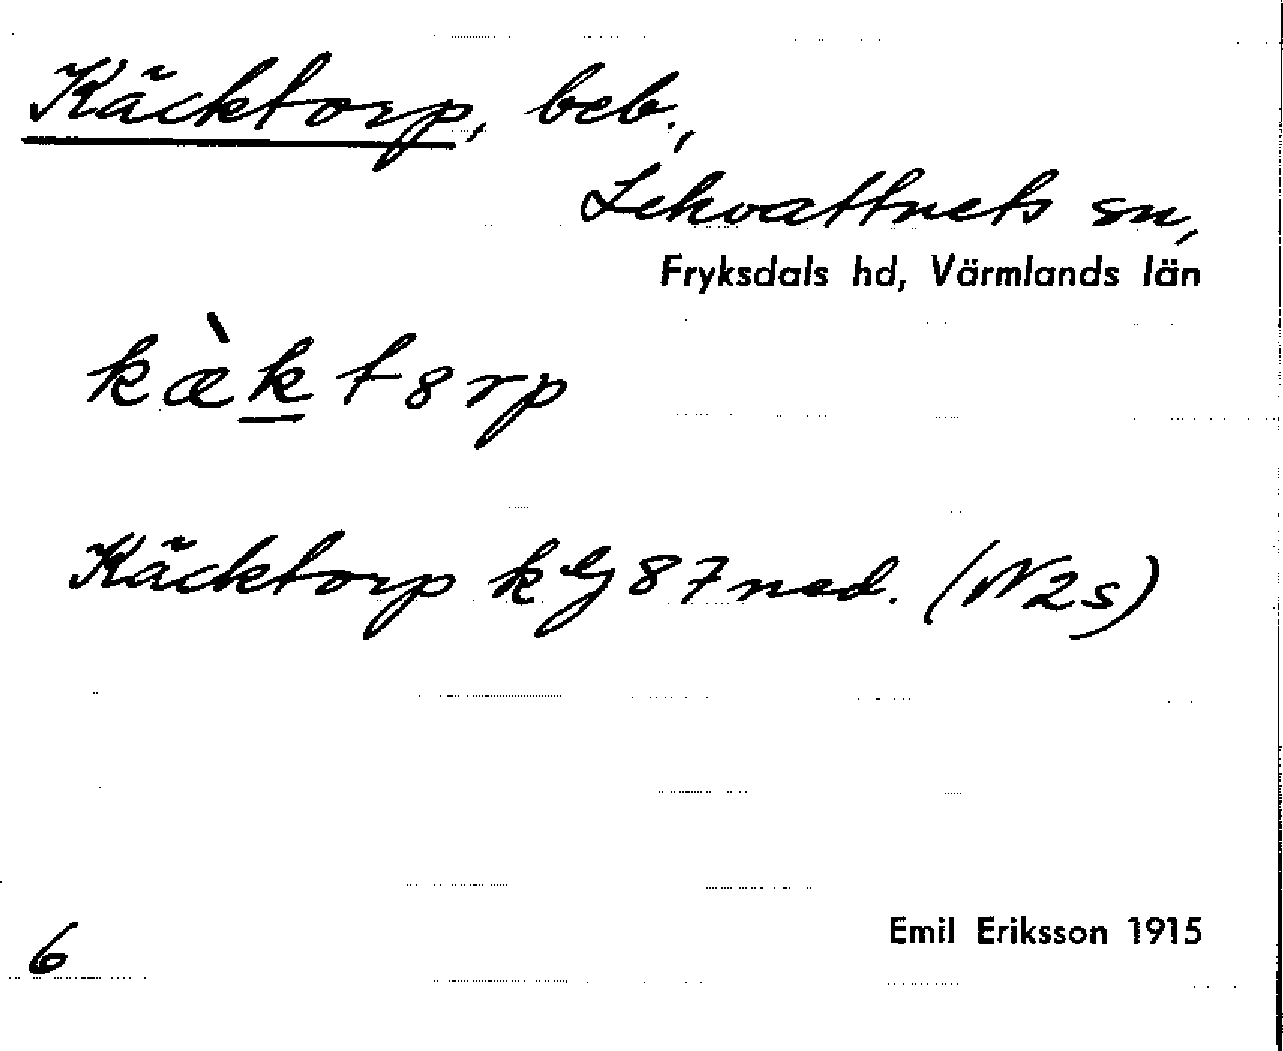 Käcktorp, beb.,
Lekvattnets sn,
Fryksdals hd, Värmlands län
kæ̀k̲t8rp
Käcktorp k G 87 ned. (N2s)
6
Emil Eriksson 1915